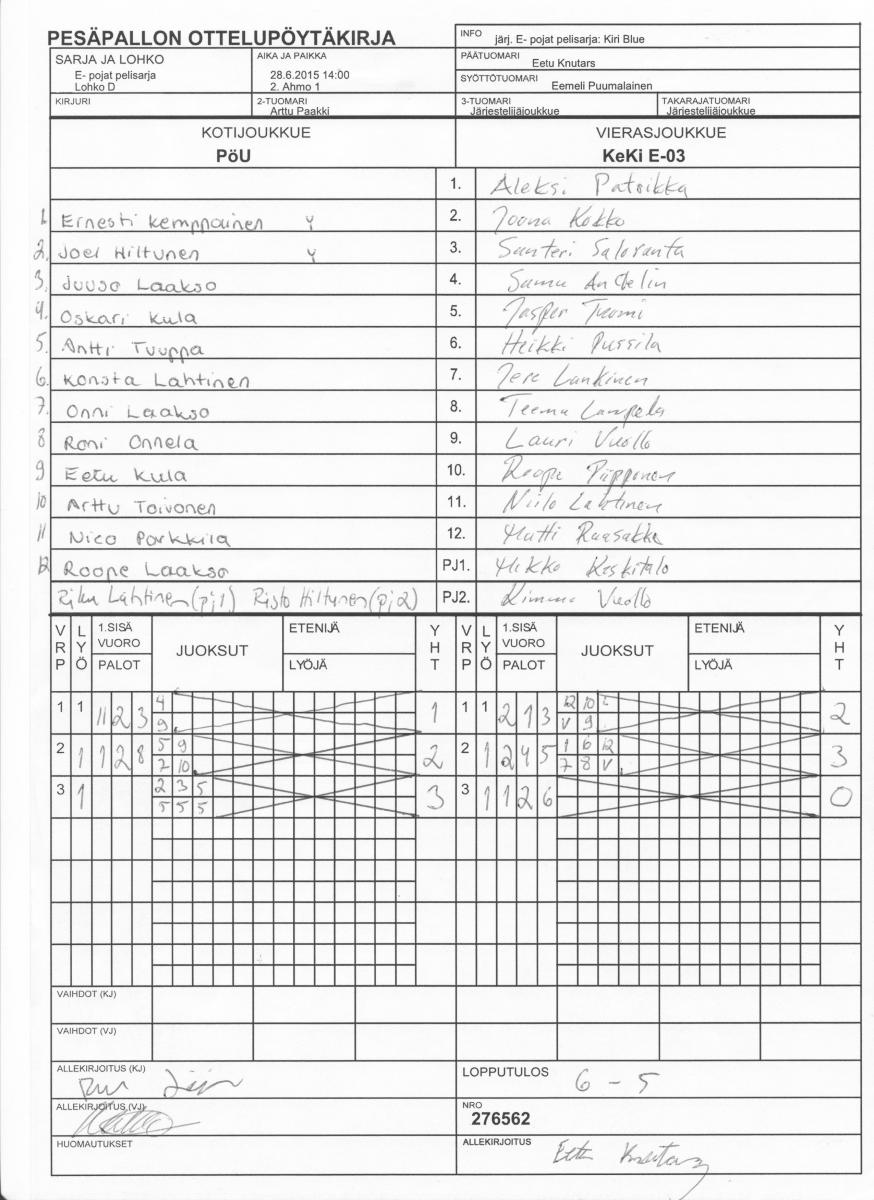 PESÄPALLON OTTELUPÖYTÄKIRJA
INFO järj. E- pojat pelisarja: Kiri Blue
SARJA JA LOHKO
E- pojat pelisarja
Lohko D
AIKA JA PAIKKA
28.6.2015 14:00
2. Ahmo 1
PÄÄTUOMARI Eetu Knutars
SYÖTTÖTUOMARI Eemeli Puumalainen
KIRJURI
2-TUOMARI
Arttu Paakki
3-TUOMARI
Järjestelijäjoukkue
TAKARAJATUOMARI
Järjestelijäjoukkue
KOTIJOUKKUE
PöU
VIERASJOUKKUE
KeKi E-03
1. Aleksi Patsikka
1. Ernesti Kemppainen Y 2. Joona Kokko
2. Joel Hiltunen Y 3. Santeri Saloranta
3. Juuso Laakso 4. Samu Andelin
4. Oskari Kula 5. Jasper Tuomi
5. Antti Tuuppa 6. Heikki Pussila
6. Konsta Lahtinen 7. Jere Lankinen
7. Onni Laakso 8. Teemu Lampela
8 Roni Onnela 9. Lauri Vuollo
9 Eetu Kula 10. Roope Piipponen
10 Arttu Toivonen 11. Niilo Lahtinen
11 Nico Porkkila 12. Matti Raasakka
12 Roope Laakso PJ1. Mikko Keskitalo
Riku Lahtinen (pj1) Risto Hiltunen (pj2) PJ2. Kimmo Vuollo
VRP LYÖ 1.SISÄ VUORO PALOT JUOKSUT ETENIJÄ LYÖJÄ YHT VRP LYÖ 1.SISÄ VUORO PALOT JUOKSUT ETENIJÄ LYÖJÄ YHT
1 1 11 2 3 4 1 1 1 2 1 3 12 10 2
9 V 9
2 1 1 2 8 5 9 2 2 1 2 4 5 1 6 12 3
7 10 7 8 V
3 1 2 3 5 3 3 1 1 2 6 0
5 5 5
VAIHDOT (KJ)
VAIHDOT (VJ)
ALLEKIRJOITUS (KJ)
LOPPUTULOS 6 - 5
ALLEKIRJOITUS (VJ)
NRO
276562
HUOMAUTUKSET
ALLEKIRJOITUS Eetu Knutars